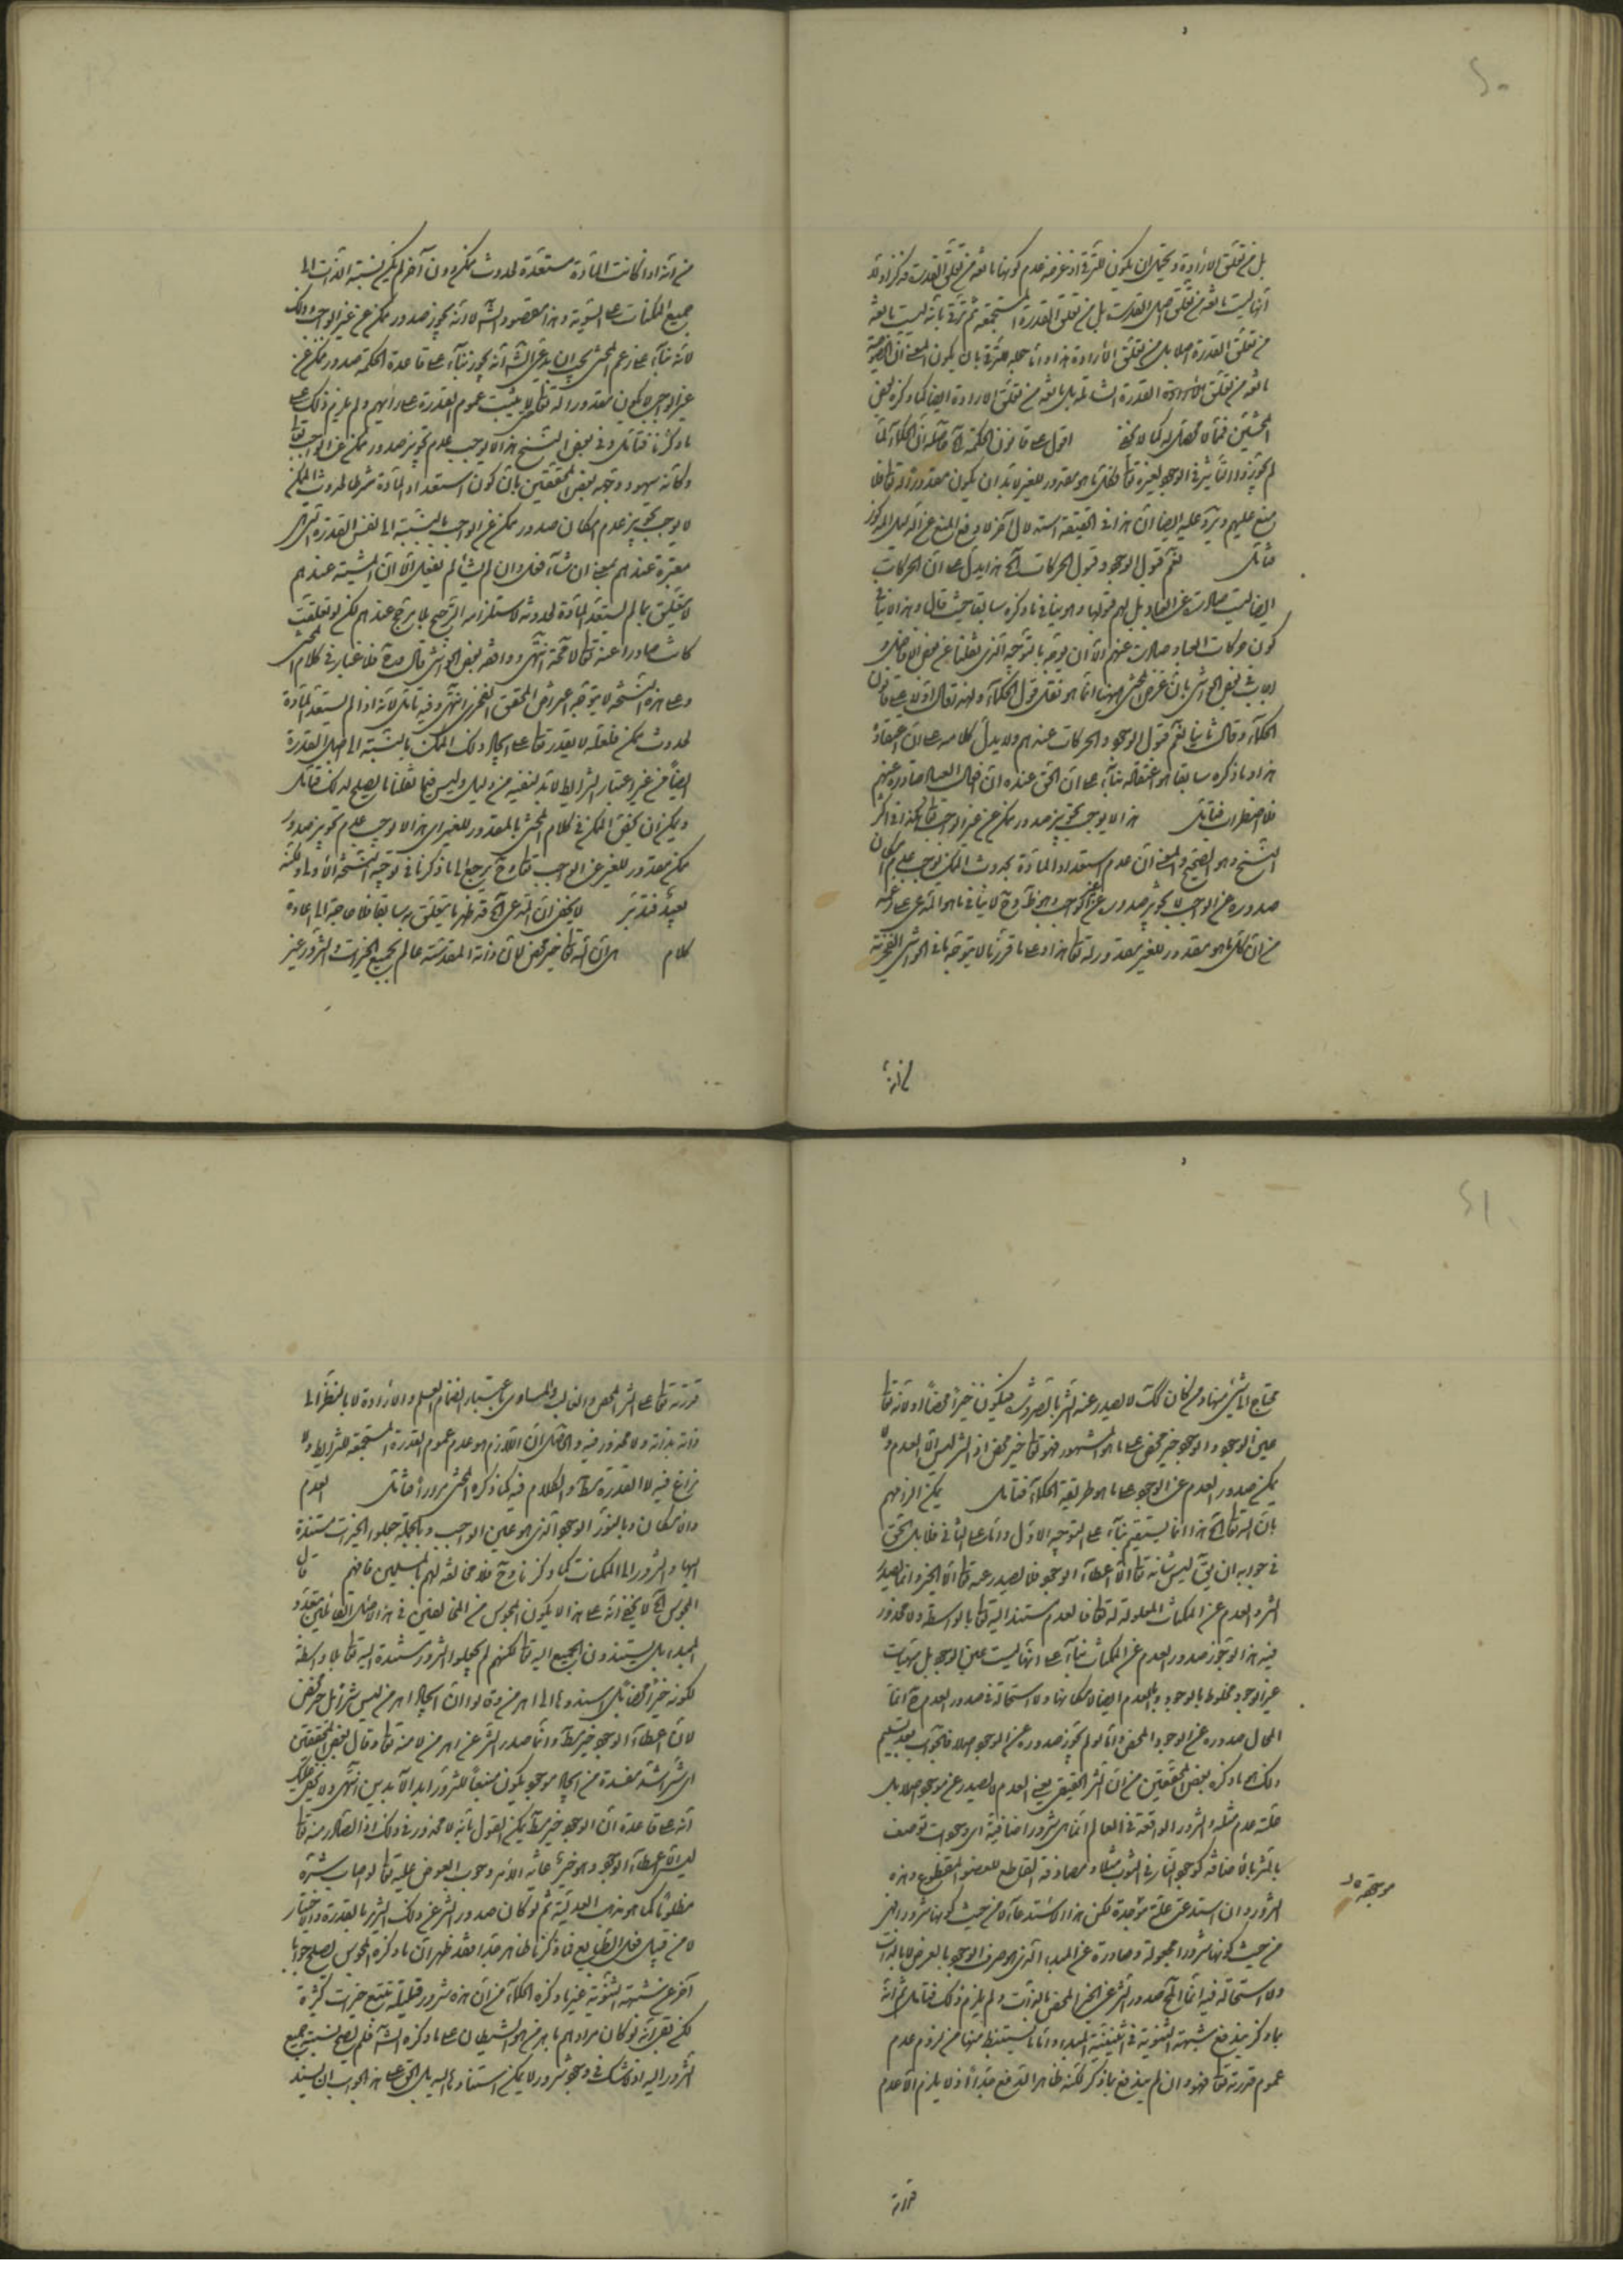 بل من تعلق الارادة ويحتمل ان يكون للترقى اذ غرضه عدم كونها مانعة من تعلق القدرة فذكر اولا
انها ليست مانعة من تعلق اصل القدرة بل من تعلق القدرة المستجمعة ثم ترقى بانه ليست مانعة
من تعلق القدرة اصلا بل من تعلق الارادة هذا واما حمله للترقى بان يكون المعنى ان الخصوصية
مانعة من تعلق القدرة الشاملة بل مانعة من تعلق الارادة ايضا كما ذكره بعض
المحشين فمما لا محصل له كما لا يخفى اقول على قانون الحكمة الخ حاصله ان الحكماء لما
لم يجوزوا التأثير فى الوجود لغيره تعالى فكل ما هو مقدور للغير لابد ان يكون مقدورا له تعالى فلا
منع عليهم ويرد عليه ايضا ان هذا فى الحقيقة استدلال آخر لا دفع المنع عن الدليل المذكور
فتأمل نعم قبول الوجود وقبول الحركات الخ هذا يدل على ان الحركات
ايضا ليست صادرة عن العباد بل لهم قبولها وهو ينافى ما ذكره سابقا حيث قال وهذا لا ينافى
كون حركات العباد صادرة عنهم الا ان يوجه بالتوجيه الذى نقلنا عن بعض الافاضل و
اجاب بعض الحواشى بان غرض المحشى ههنا انما هو نقل قول الحكماء ولهذا قال اولا على قانون
الحكماء وقال ثانيا نعم قبول الوجود والحركات عندهم ولا يدل كلامه على ان اعتقاده
هذا وما ذكره سابقا هو اعتقاده بناء على ان الحق عنده ان افعال العباد صادرة عنهم
فلا اضطراب فتأمل هذا لا يوجب تجويز صدور ممكن عن غير الواجب تعالى هكذا فى اكثر
النسخ وهو الصحيح والمعنى ان عدم استعداد المادة بحدوث الممكن يوجب عدم امكان
صدوره عن الواجب لا تجويز صدوره عن غير الواجب وهو ظاهر وح لا ينافى ما هو المدعى على زعمه
من ان كل ما هو مقدور للغير مقدور له تعالى هذا وعلى ما قررنا لا يتوجه ما فى الحواشى الفخرية
من انه
من انه اذا كانت المادة مستعدة لحدوث ممكن دون آخر لم يكن نسبة الذات الى
جميع الممكنات على السوية وهذا مقصود الشارح لا انه يجوز صدور ممكن عن غير الواجب وذلك
لانه بناء على زعم المحشى يجب ان يدعى الشارح انه يجوز بناء على قاعدة الحكمة صدور ممكن عن
غير الواجب لا يكون مقدورا له تعالى حتى يثبت عموم القدرة على رأيهم ولم يلزم ذلك على
ما ذكرنا فتأمل وفى بعض النسخ هذا لا يوجب عدم تجويز صدور ممكن عن الواجب تعالى
وكأنه سهو ووجهه بعض المحققين بان كون استعداد المادة شرطا لحدوث الممكن
لا يوجب تجويز عدم امكان صدور ممكن عن الواجب بالنسبة الى نفس القدرة التى هى
معتبرة عندهم بمعنى ان شاء فعل وان لم يشأ لم يفعل الا ان المشيئة عندهم
لا يتعلق بما لم يستعد المادة لحدوثه لاستلزامه الترجيح بلا مرجح عندهم لكن لو تعلقت
كانت صادرا عنه تعالى لا محة انتهى ووافقه بعض الحواشى قال مدة فلا غبار فى كلام المحشى
وعلى هذه النسخة لا يتوجه اعتراض المحقق الفخرى انتهى وفيه تأمل لانه اذا لم يستعد المادة
لحدوث ممكن فلعله لا يقدر تعالى على ايجاد ذلك الممكن بالنسبة الى اصل القدرة
ايضا من غير اعتبار الشرايط لابد لنفيه من دليل وليس فيما نقلنا ما يصلح لذلك فتأمل
ويمكن ان يخص الممكن فى كلام المحشى بالمقدور للغير اى هذا لا يوجب عدم تجويز صدور
ممكن مقدور للغير عن الواجب تعالى وح يرجع الى ما ذكرنا فى توجيه النسخة الاولى ولكنه
بعيد فتدبر لا يخفى ان المدعى الخ قد ظهر ما يتعلق به سابقا فلا حاجة الى اعادة
كلام اى ان الله تعالى خير محض لان ذاته المقدسة عالم بجميع الخيرات والشرور غير
محتاج الى شىء منها ومن كان كك لا يصدر عنه الشر بالضرورة فيكون خيرا محضا او لانه تعالى
عين الوجود والوجود خير محض على ما هو المشهور فهو تعالى خير محض اذ الشر ليس الا العدم ولا
يمكن صدور العدم عن الوجود على ما هو طريقة الحكماء فتأمل يمكن الزامهم
بان الله تعالى الخ هذا انما يستقيم بناء على التوجيه الاول واما على الثانى فلا بل الحق
فى جوابه ان يق ليس شأنه تعالى الا اعطاء الوجود فلا يصدر عنه تعالى الا الخير وانما يصدر
الشر والعدم عن الممكنات المعلولة له تعالى فالعدم مستند اليه تعالى بالواسطة ولا محذور
فيه هذا لو جوز صدور العدم عن الممكنات بناء على انها ليست عين الوجود بل مهيات
غير الوجود مخلوط بالوجود وبالعدم ايضا لامكانها ولا استحالة فى صدور العدم عنها انما
المحال صدوره عن الوجود المحض واما لو لم يجوز صدوره عن الوجود اصلا فالجواب بعد تسليم
ذلك ما ذكره بعض المحققين من ان الشر الحقيقى يعنى العدم لا يصدر عن موجود اصلا بل
علته عدم مثله والشرور الواقعة فى العالم انما هى شرور اضافية اى وجودات توصف
بالشر بالاضافة كوجود النار فى الثوب مثلا ومصادفة القاطع للعضو المقطوع وهذه
الشرور وان استدعى علة موجدة لكن هذا الاستدعاء لا من حيث كونها شرورا فهى
من حيث كونها شرورا مجعولة وصادرة عن المبدء الذى هو صرف الوجود بالعرض لا بالذات
ولا استحالة فيه انما المح صدور الشر عن الخير المحض بالذات ولم يلزم ذلك فتأمل ثم انه
بما ذكر يندفع شبهة الثنوية فى اثنينية المبدء واما ما يستنبط منها من لزوم عدم
عموم قدرته تعالى فهو وان لم يندفع بما ذكر لكنه ظاهر الدفع جدا اذ لا يلزم الا عدم
موجدة
قدرته
قدرته تعالى على الشر المحض والغالب والمساوى باعتبار انضمام العلم والارادة لا بالنظر الى
ذاته بذاته ولا محذور فيه والحاصل ان اللازم هو عدم عموم القدرة المستجمعة للشرايط ولا
نزاع فيه لا القدرة مط والكلام فيه كما ذكره المحشى مرارا فتأمل العدم
والامكان وبالنور الوجود الذى هو عين الواجب وبالجملة جعلوا الخيرات مستندة
اليها والشرور الى الممكنات كما ذكرنا وح فلا مخالفة لهم للمسلمين فافهم قال
المجوس الخ لا يخفى انه على هذا لا يكون المجوس من المخالفين فى هذا الاصل القائلين بتعدد
المبدء بل يستندون الجميع اليه تعالى لكنهم لم يجعلوا الشرور مستندة اليه تعالى بلا واسطة
لكونه خيرا محضا بل اسندوها الى اهرمن وقالوا ان ايجاد اهرمن ليس شرا بل خير محض
لان اعطاء الوجود خير مط وانما صدر الشر عن اهرمن لا منه تعالى وقال بعض المحققين
اى شر اشد مفسدة من ايجاد موجود يكون منبعا للشرور ابد الآبدين انتهى ولا يخفى عليك
انه على قاعدة ان الوجود خير مط يمكن القول بانه لا محذور فى ذلك اذ الصادر منه تعالى
ليس الا اعطاء الوجود وهو خير غاية الامر وجوب العوض عليه تعالى لو اصاب شره
مظلوما كما هو مذهب العدلية ثم لو كان صدور الشر عن ذلك الشرير بالقدرة والاختيار
لا من قبيل فعل الطبايع فما ذكرنا ظاهر جدا فقد ظهر ان ما ذكره المجوس يصلح جوابا
آخر عن شبهة الثنوية غير ما ذكره الحكماء من ان هذه شرور قليلة تتبع خيرات كثيرة
لكن بقى انه لو كان مرادهم باهرمن هو الشيطان على ما ذكره الشارح فلم يصح نسبة جميع
الشرور اليه اذ لا شك فى وجود شرور لا يمكن استنادها اليه بل الحق على هذا الجواب ان يستند